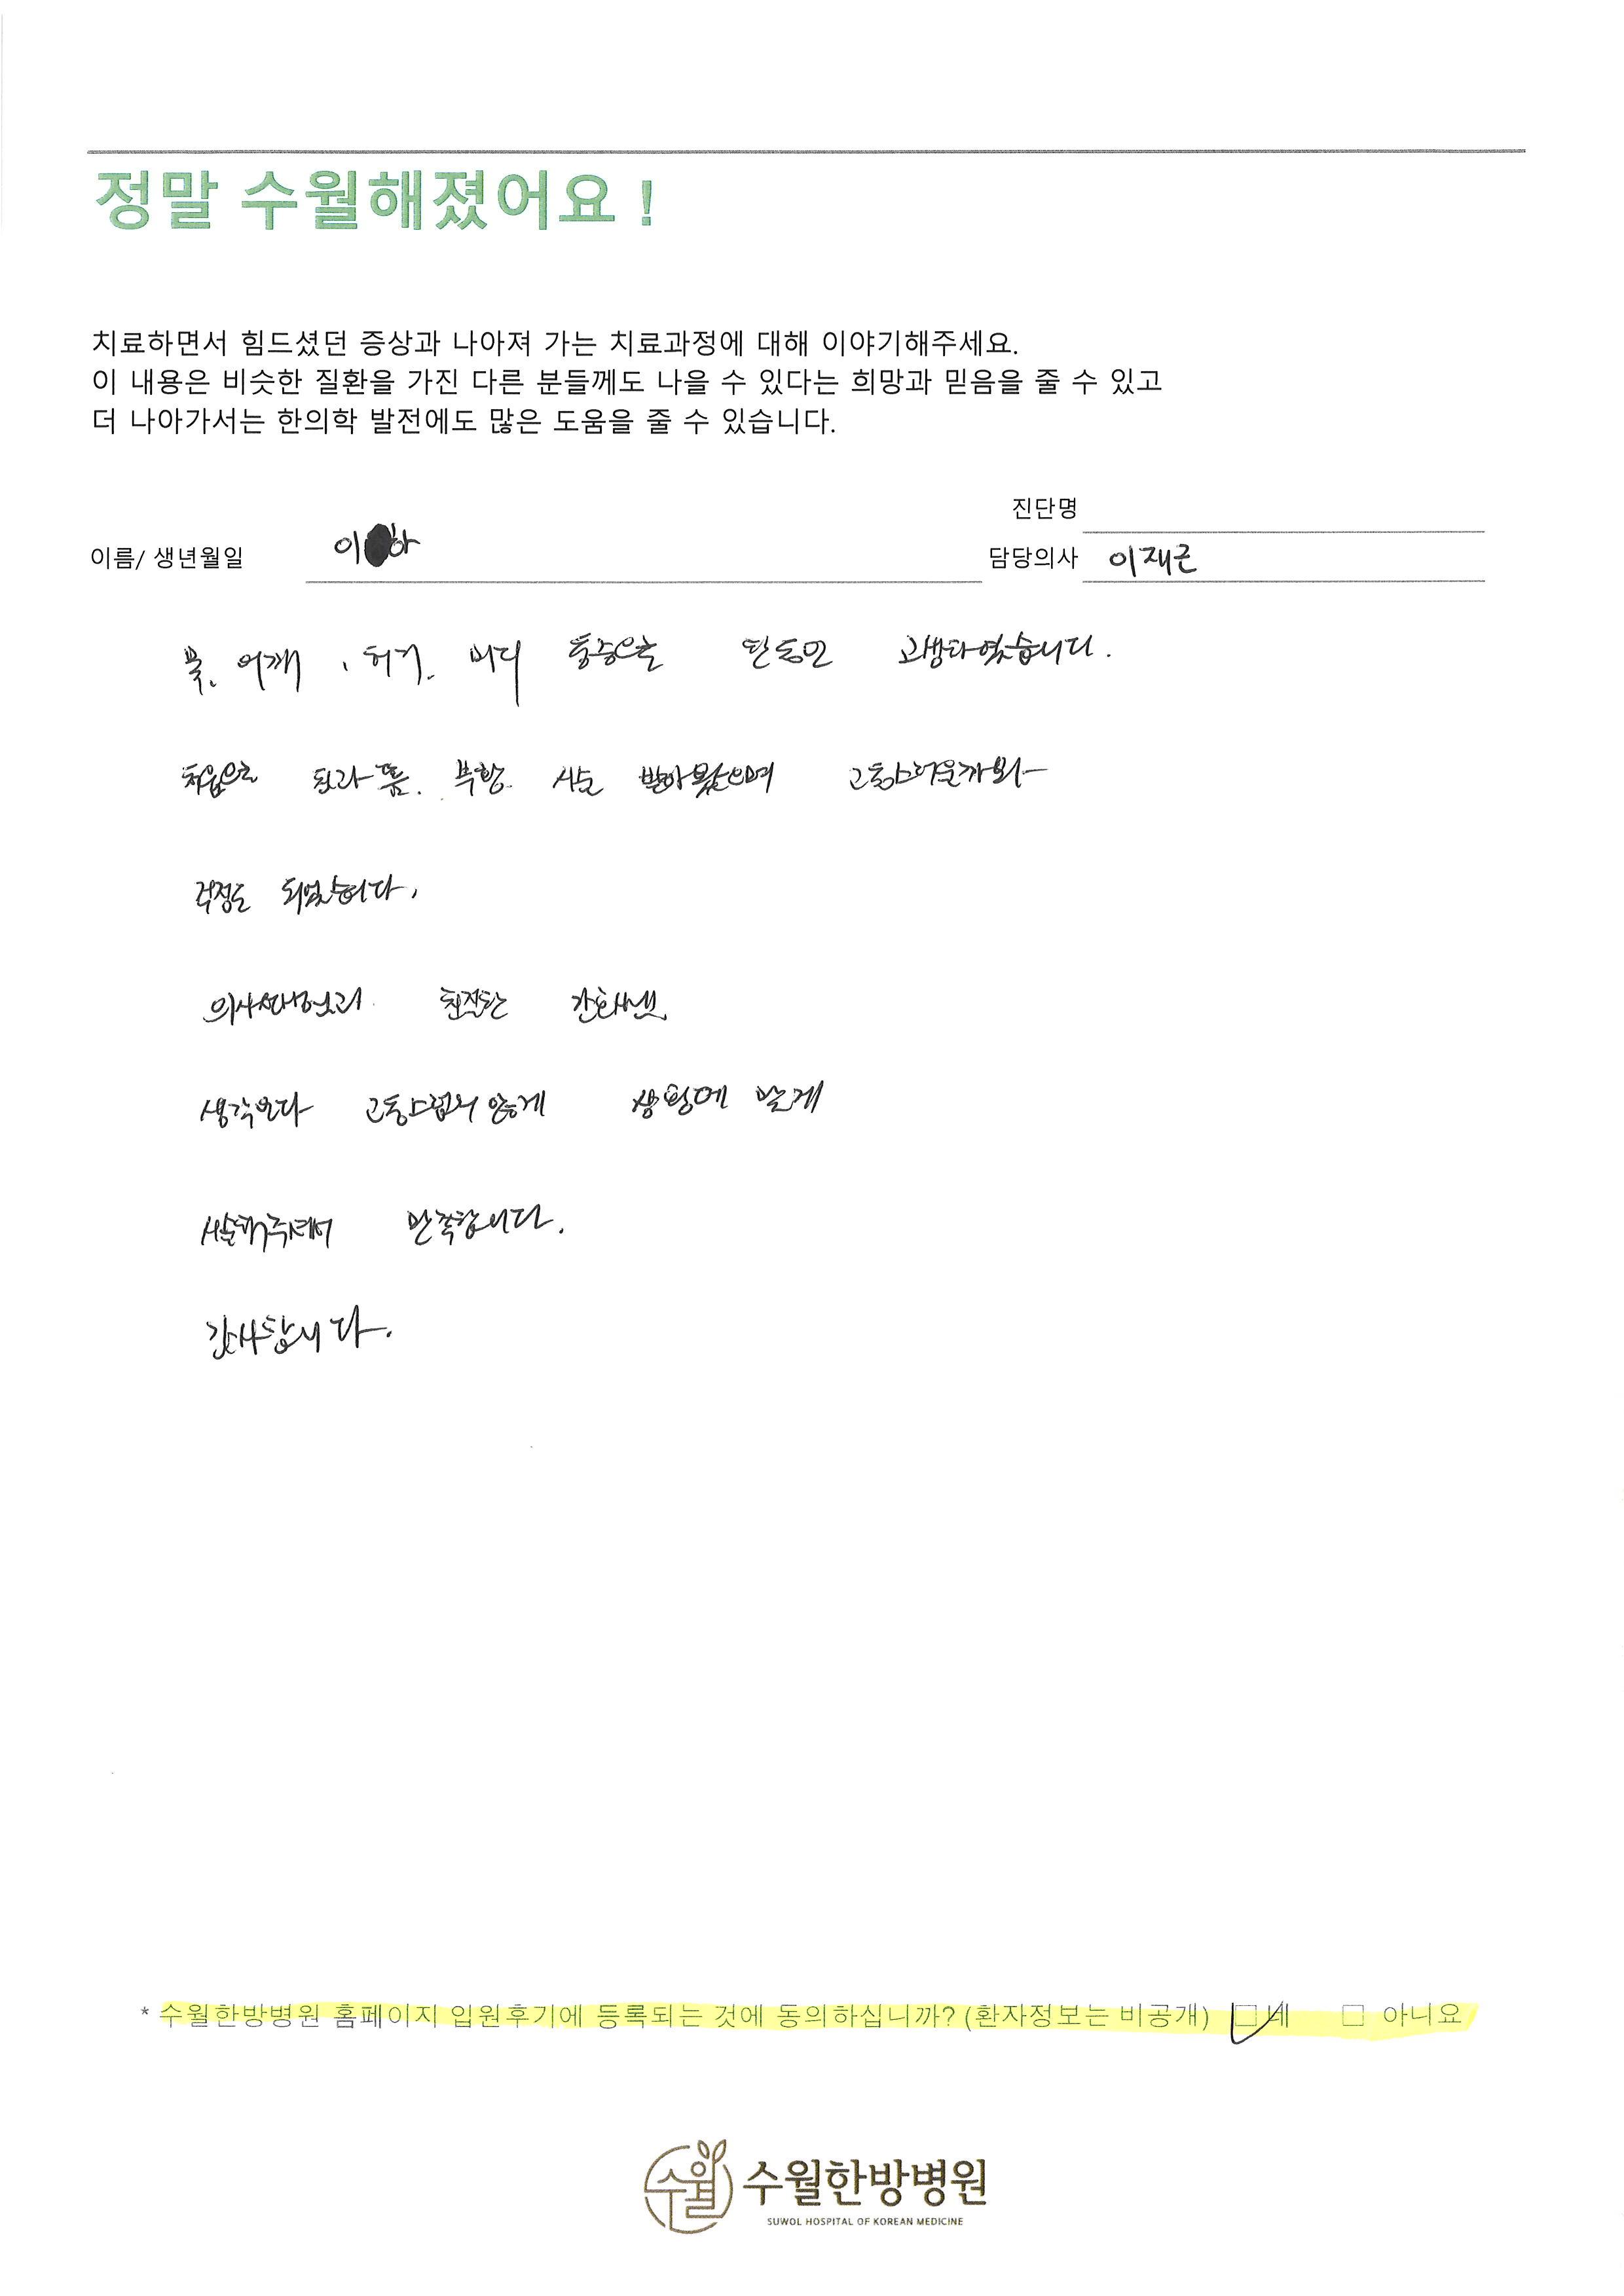 정말 수월해졌어요 !
치료하면서 힘드셨던 증상과 나아져 가는 치료과정에 대해 이야기해주세요.
이 내용은 비슷한 질환을 가진 다른 분들께도 나을 수 있다는 희망과 믿음을 줄 수 있고
더 나아가서는 한의학 발전에도 많은 도움을 줄 수 있습니다.
진단명
이름/ 생년월일 이 하 담당의사 이재근
목, 어깨, 허리. 통증으로 한동안 고생하였습니다.
처음으로 부항. 시술 받아봤으며 고통스러운가 봐
걱정도 되었습니다.
의사선생님과 친절한 간호사
생각보다 고통스럽지 않게 상황에 맞게
시술해주셔서 만족합니다.
감사합니다.
* 수월한방병원 홈페이지 입원후기에 등록되는 것에 동의하십니까? (환자정보는 비공개) □ 네 □ 아니요
수월 수월한방병원
SUWOL HOSPITAL OF KOREAN MEDICINE